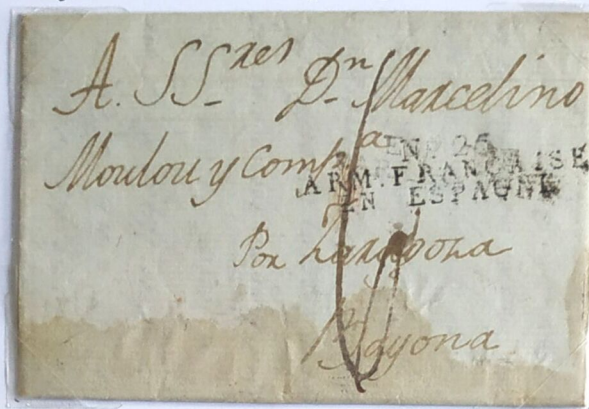 A. SS.res Dn Marcelino
Moulou y Compa
No 26
ARM. FRANÇAISE
EN ESPAGNE
Por Zaragoza
Bayona